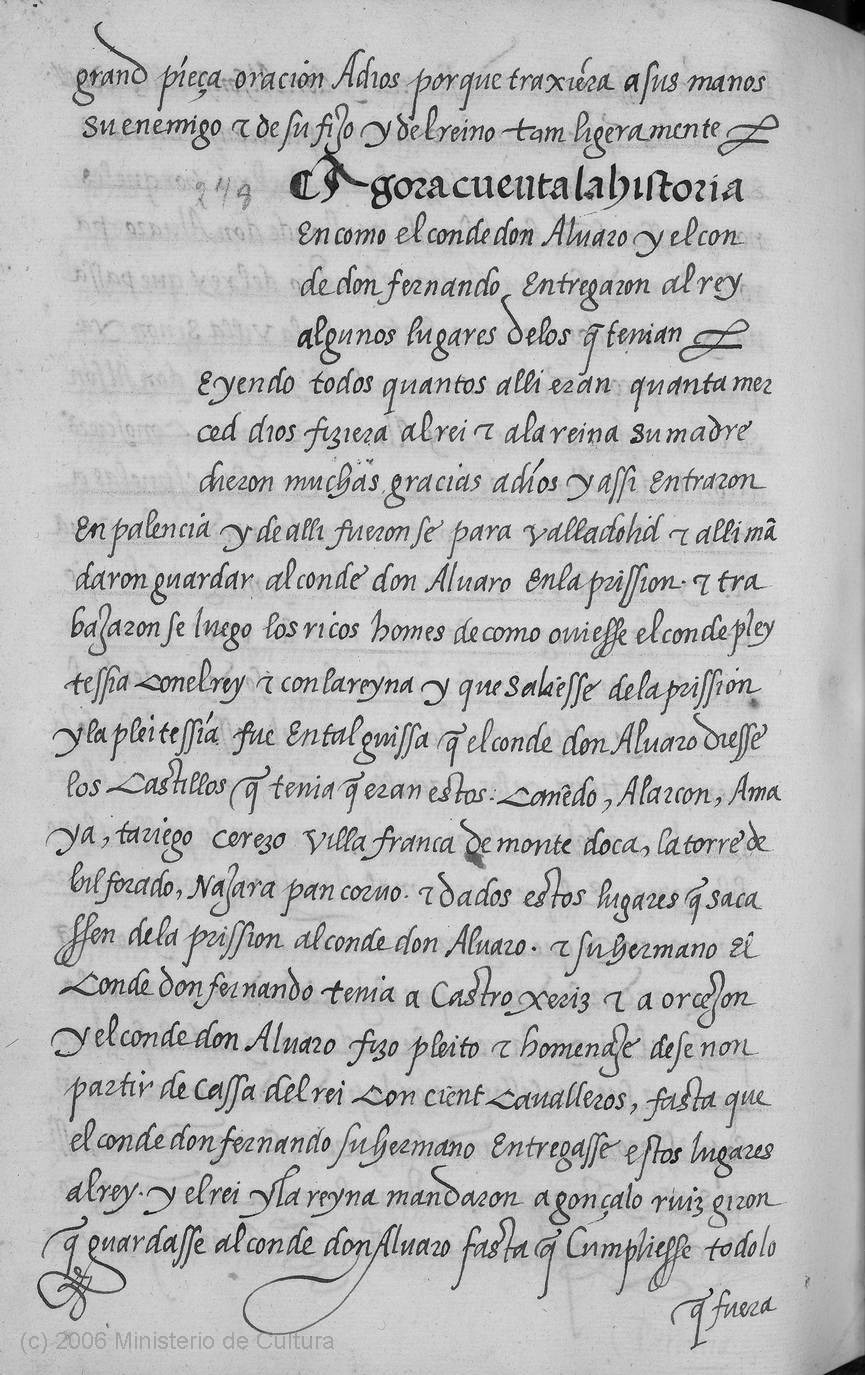 grand pieça oraciòn Adios porque traxiéra a sus manos
su enemigo τ de su fijo y del reino tam ligeramente
248 Agora cuenta la historia
En como el conde don Alvaro y el con
de don fernando Entregaron al rey
algunos lugares delos q̃ tenian
Eyendo todos quantos alli eran quanta mer
ced dios fiziera al rei τ ala reina su madre
dieron muchas gracias adíos y assi Entraron
En palencia y de alli fueron se para valladolid τ alli mã
daron guardar al conde don Alvaro Enla prission. τ tra
bajaron se luego los ricos homes de como oviesse el conde pley
tessia Con el rey τ con la reyna y que saliesse dela prissión
y la pleitessiá fue En tal guissa q̃ el conde don Alvaro diesse
los Castillos q̃ tenia q̃ eran estos: Cañedo, Alarcon, Ama
ya, tariego cerezo villa franca de monte doca, la torre de
bilforado, Najara pancorvo. τ dados estos lugares q̃ saca
ssen dela prission al conde don Alvaro. τ su hermano El
Conde don fernando tenia a Castro xeriz τ a orcejon
y el conde don Alvaro fizo pleito τ homenaje de se non
partir de Cassa del rei Con cient Cavalleros, fasta que
el conde don fernando su hermano Entregasse estos lugares
al rey. y el rei y la reyna mandaron a gonçalo ruiz giron
q̃ guardasse al conde don Alvaro fasta q̃ Cumpliesse todo lo
q̃ fuera
(c) 2006 Ministerio de Cultura